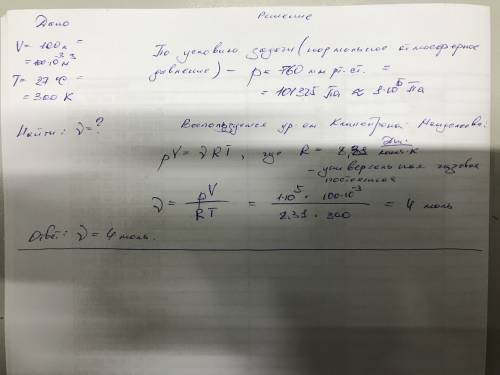 Дано
Решение
V = 100 л =
= 100·10⁻³ м³
T = 27 °C =
= 300 K
По условию задачи (нормальное атмосферное
давление) – p = 760 мм рт. ст. =
= 101325 Па ≈ 1·10⁵ Па
Найти: ν = ?
Воспользуемся ур-ем Клапейрона-Менделеева:
pV = νRT, где R = 8,31 Дж/моль·К
- универсальная газовая
постоянная
ν = pV/RT = 1·10⁵ · 100·10⁻³ / 8.31 · 300 = 4 моль
Ответ: ν = 4 моль.